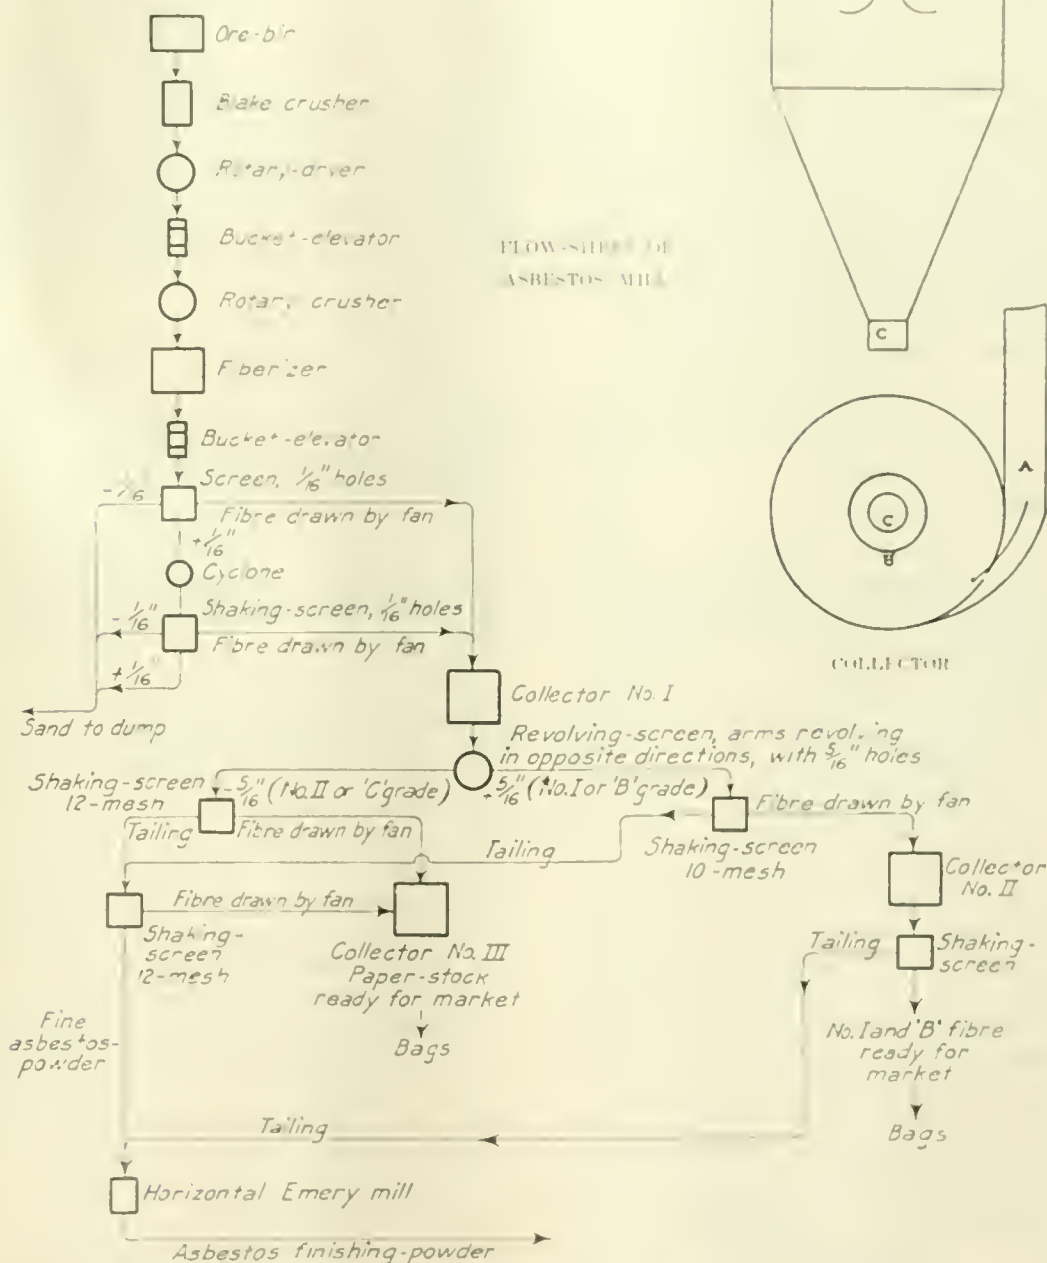 Ore-bin
Blake crusher
Rotary-dryer
Bucket-elevator
Rotary crusher
Fiberizer
Bucket-elevator
FLOW-SHEET OF
ASBESTOS MILL
C
A
C
B
COLLECTOR
Screen, 1/16" holes
-1/16"
Fibre drawn by fan
+1/16"
Cyclone
Shaking-screen, 1/16" holes
-1/16"
Fibre drawn by fan
+1/16"
Sand to dump
Collector No. I
Revolving-screen, arms revolving
in opposite directions, with 5/16" holes
Shaking-screen
12-mesh
-5/16" (No. II or 'C' grade)
+5/16" (No. I or 'B' grade)
Fibre drawn by fan
Tailing
Fibre drawn by fan
Tailing
Shaking-screen
10-mesh
Collector
No. II
Fibre drawn by fan
Shaking-
screen
12-mesh
Collector No. III
Paper-stock
ready for market
Bags
Tailing
Shaking-
screen
No. I and 'B' fibre
ready for
market
Bags
Fine
asbestos-
powder
Tailing
Horizontal Emery mill
Asbestos finishing-powder